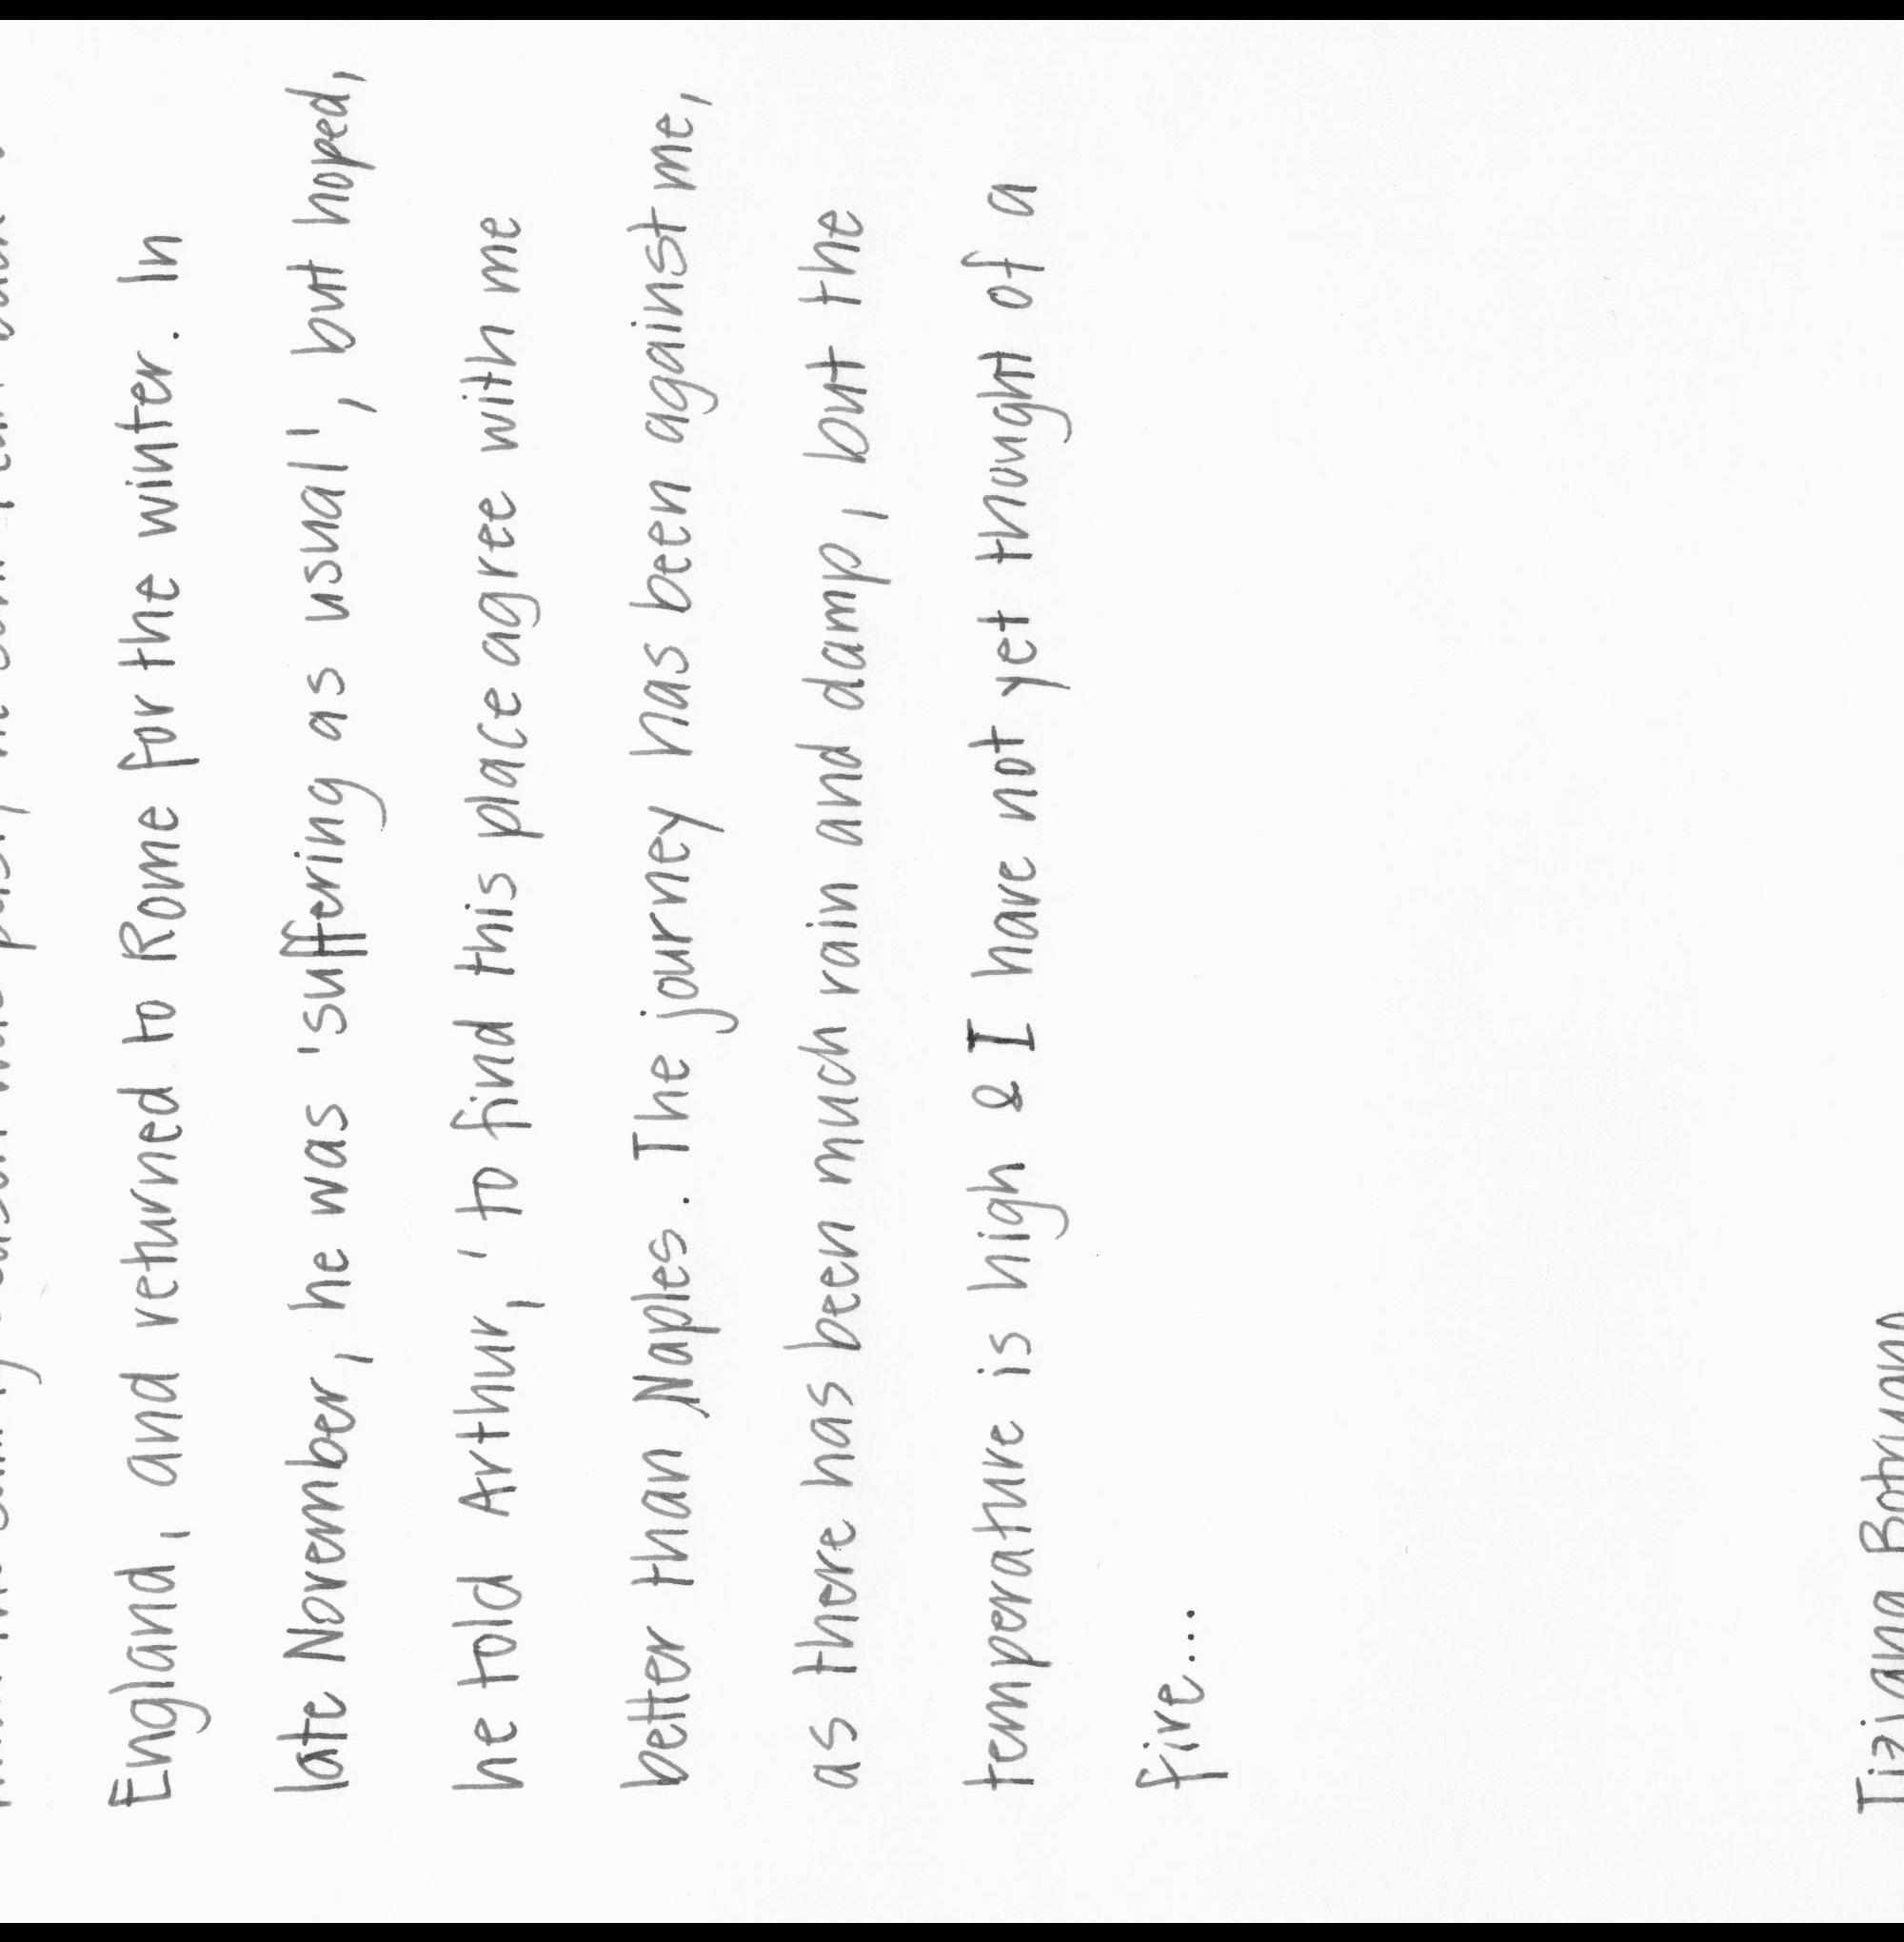 England, and returned to Rome for the winter. In
late November, he was 'suffering as usual', but hoped,
he told Arthur, 'to find this place agree with me
better than Naples. The journey has been against me,
as there has been much rain and damp, but the
temperature is high & I have not yet thought of a
fire...
Tiziana